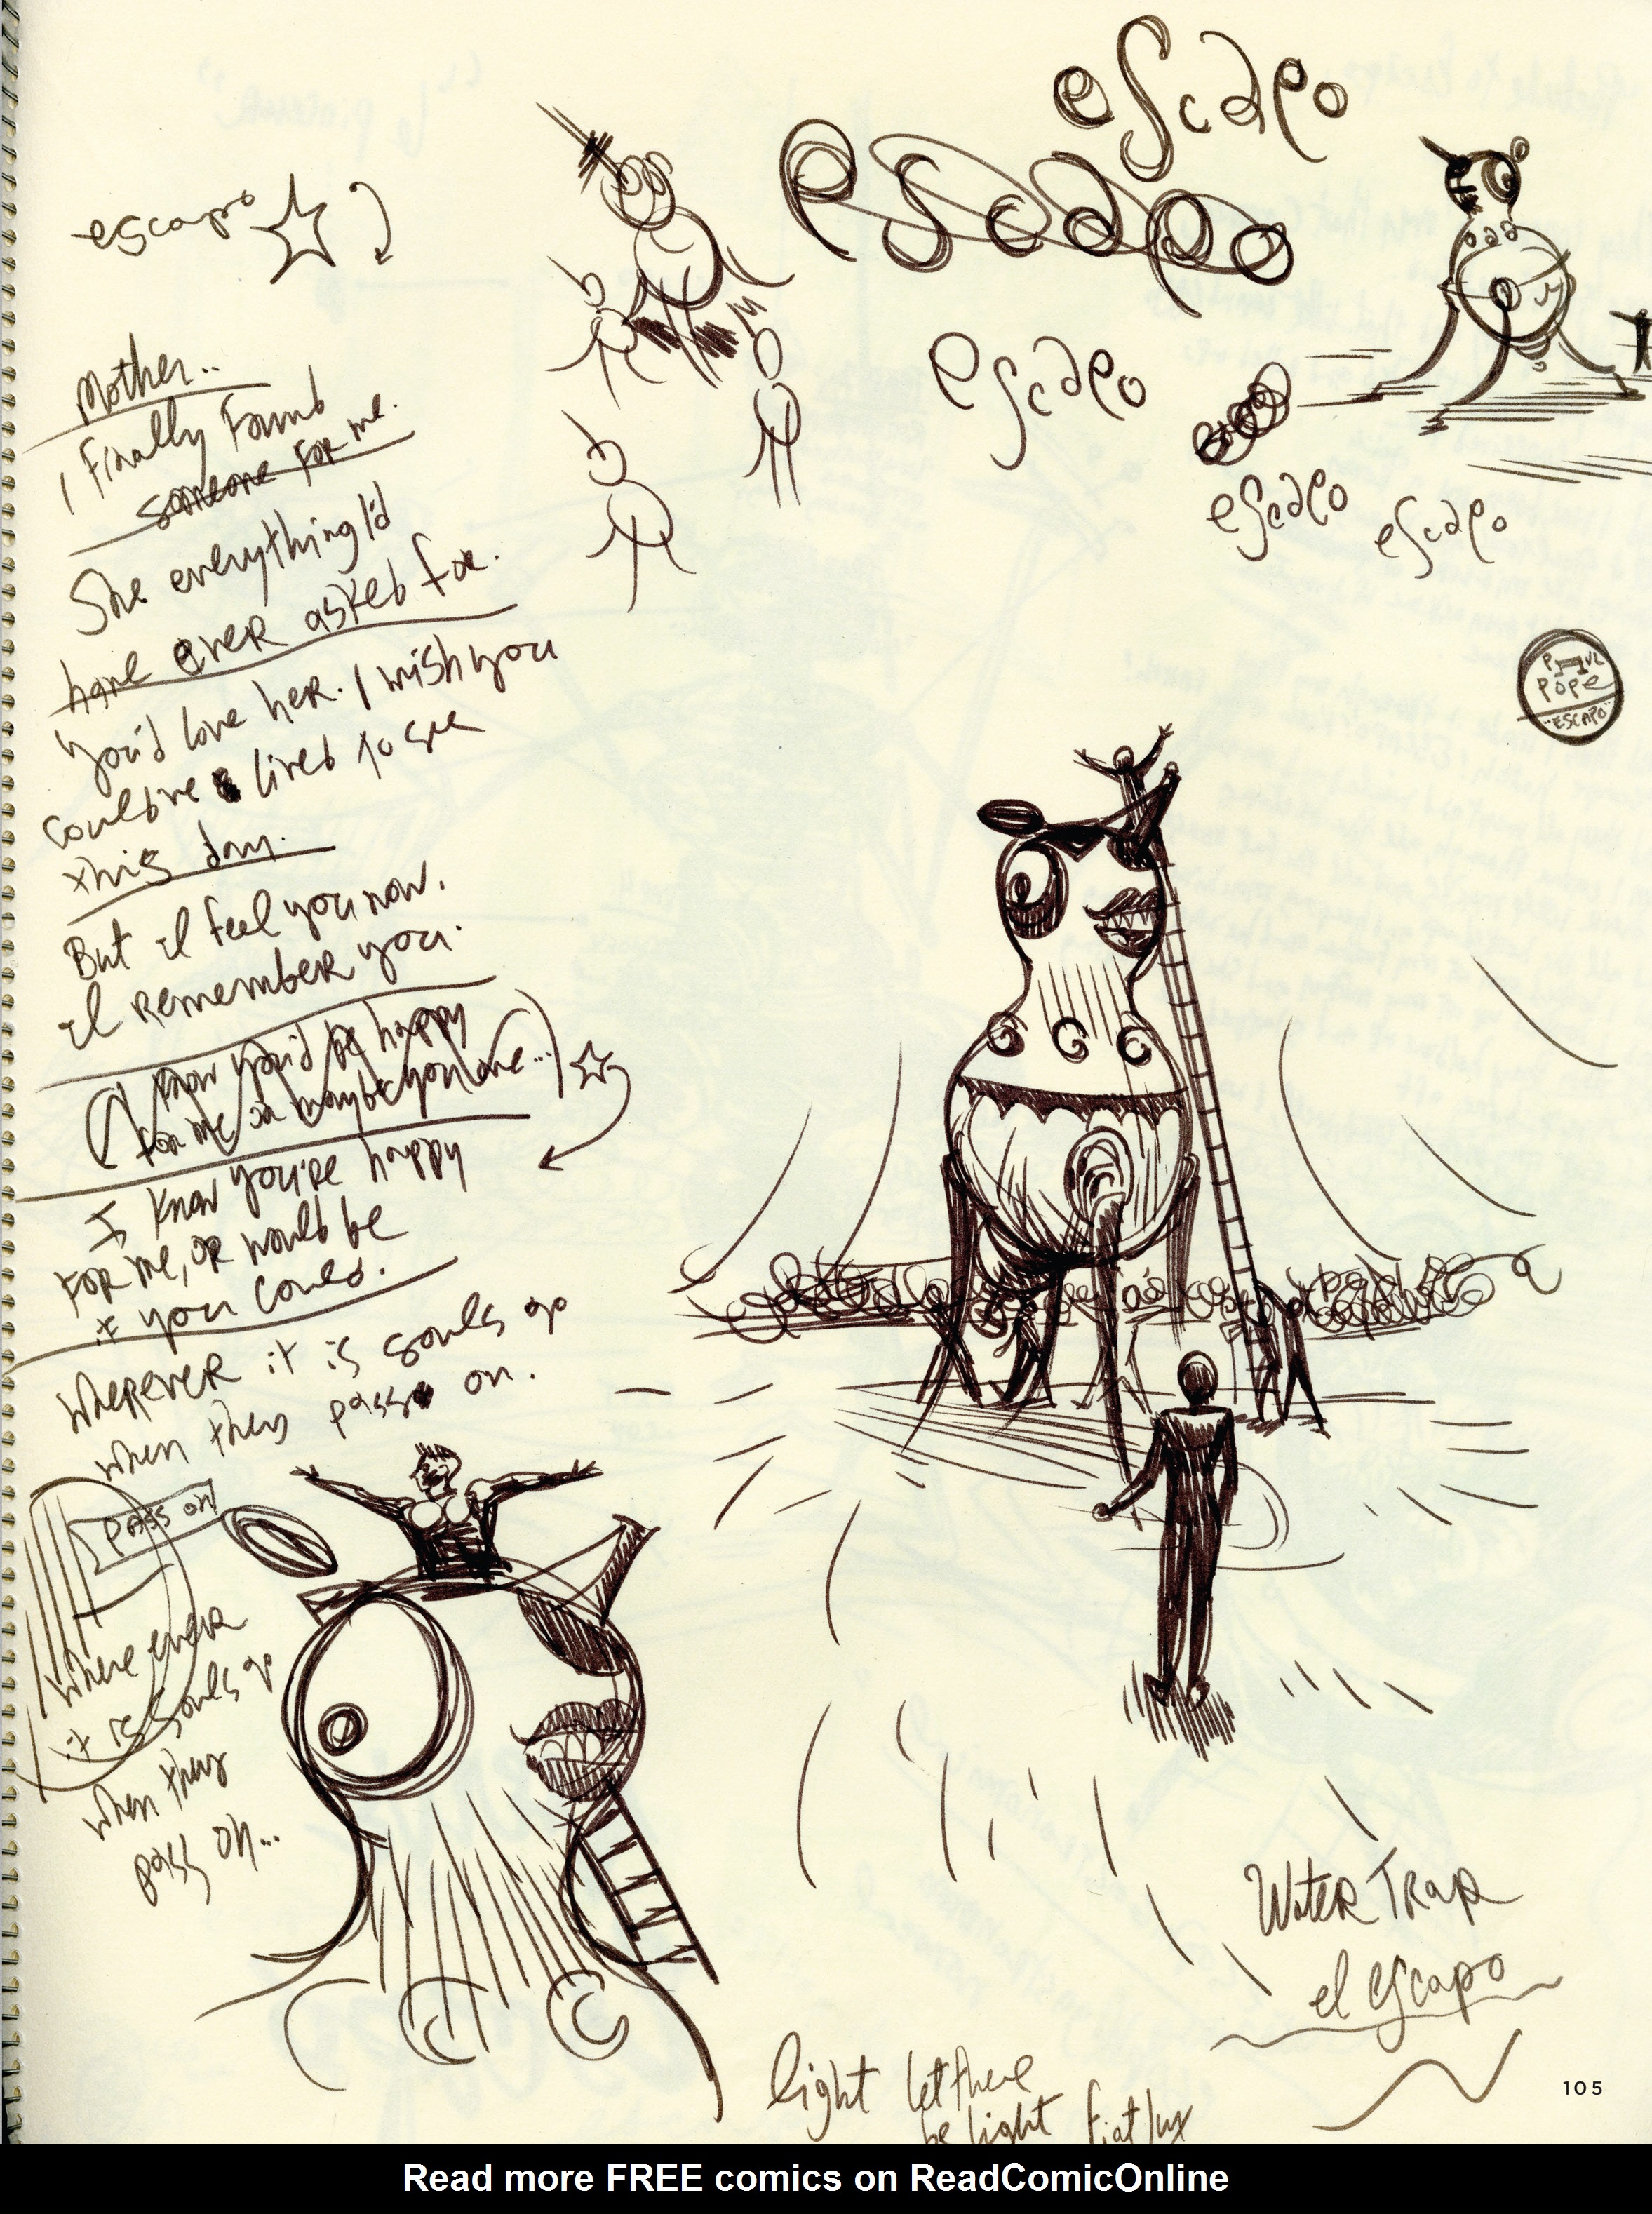 escapo
escapo
escapo
escapo
escapo
escapo
Mother..
I Finally Found
someone for me.
She everything I'd
have ever asked for.
You'd love her. I wish you
could've lived to see
this day.
But I feel you now.
I remember you.
(I know you'd be happy
for me or maybe you are...)
I know you're happy
for me, or would be
if you could.
Wherever it is souls go
when they pass on.
PASS ON
Where ever
it is souls go
when they
pass on...
PAUL
POPE
"ESCAPO"
Water Trap
el escapo
light let there
be light fiat lux
105
Read more FREE comics on ReadComicOnline